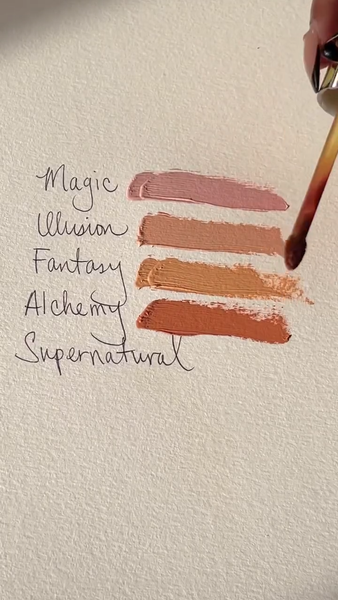 Magic
Illusion
Fantasy
Alchemy
Supernatural